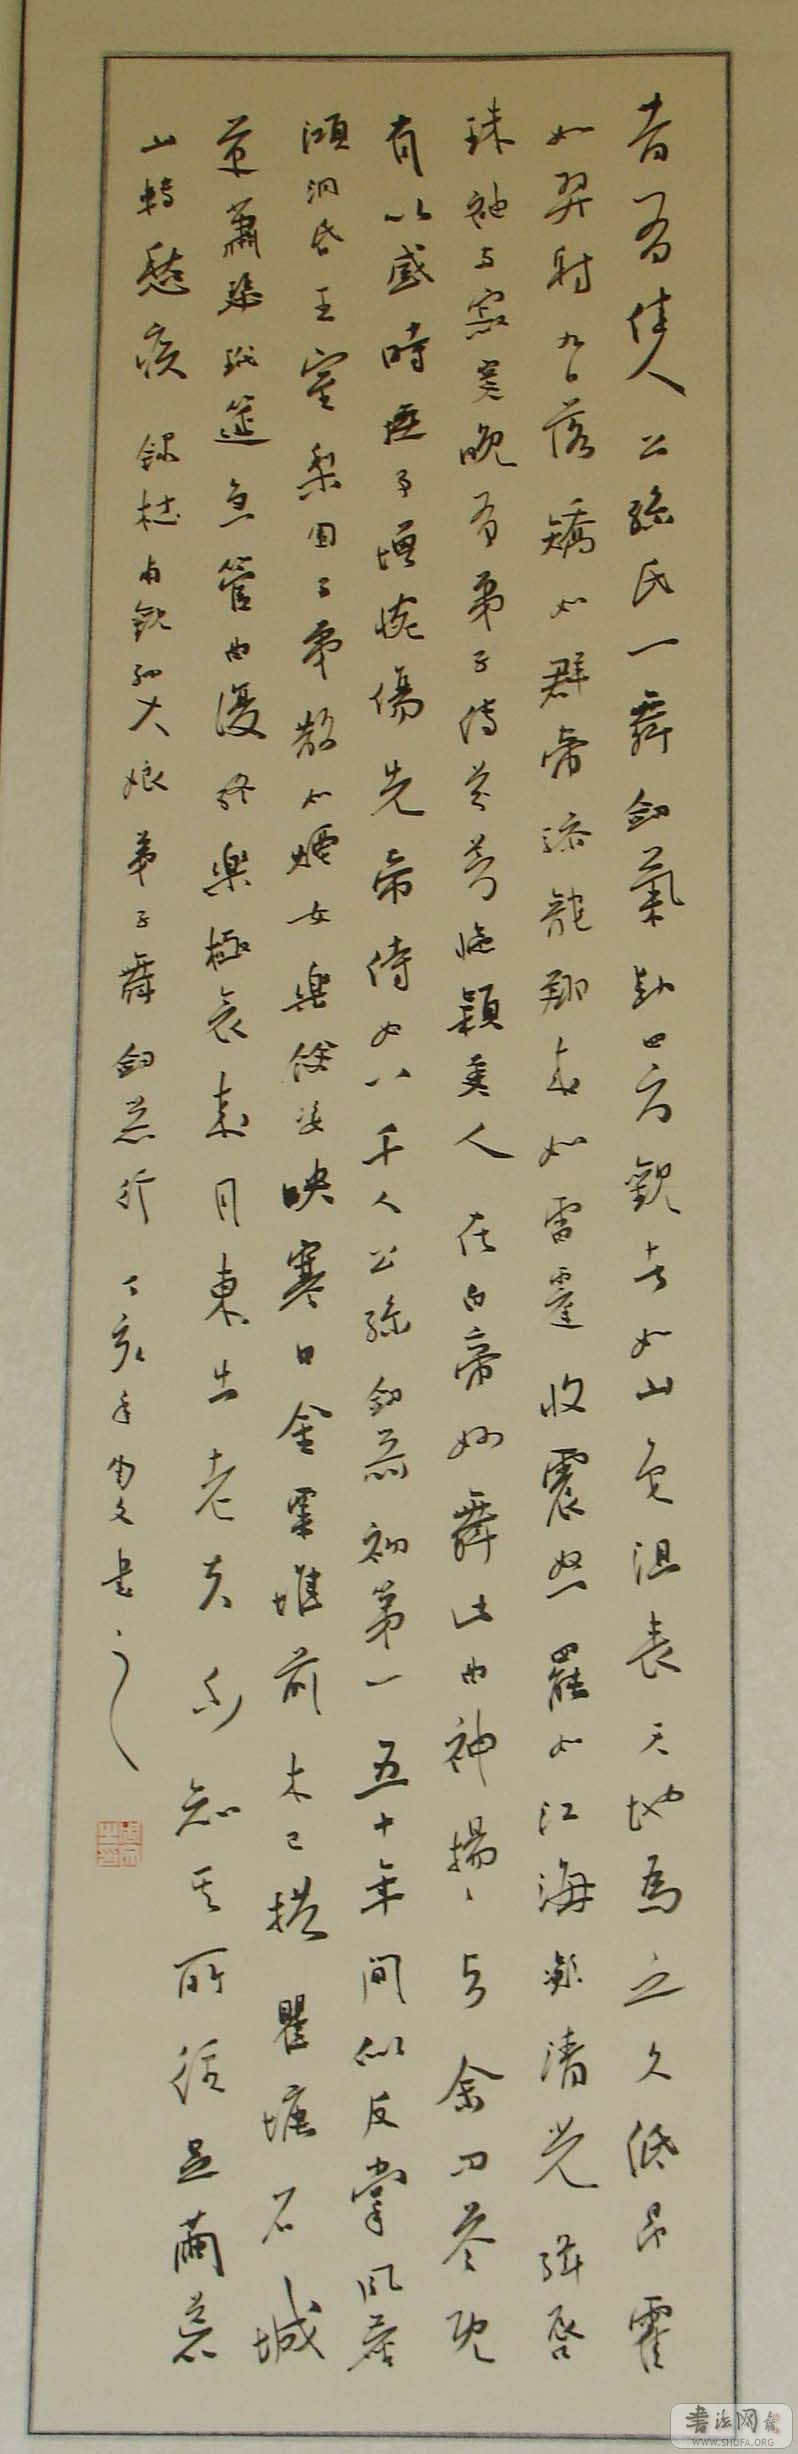 昔有佳人公孫氏一舞劍氣動四方觀者如山色沮喪天地為之久低昂霍
如羿射九日落矯如群帝驂龍翔來如雷霆收震怒罷如江海凝清光絳唇
珠袖兩寂寞晚有弟子傳芬芳臨潁美人在白帝妙舞此曲神揚揚與余問答既
有以感時撫事增惋傷先帝侍女八千人公孫劍器初第一五十年間似反掌風塵
澒洞昏王室梨園子弟散如煙女樂餘姿映寒日金粟堆前木已拱瞿塘石城
草蕭瑟玳筵急管曲復終樂極哀來月東出老夫不知其所往足繭荒
山轉愁疾 錄杜甫觀孫大娘弟子舞劍器行 丁亥年周文書之
书法网
WWW.SHUFA.ORG